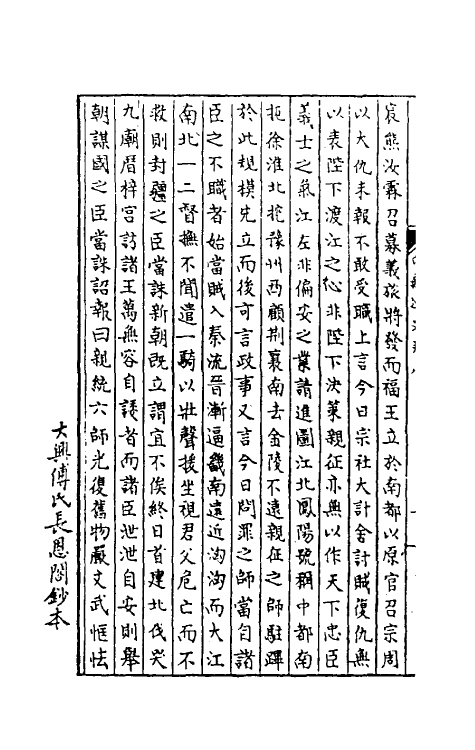 宸熊汝霖召募義旅將發而福王立於南都以原官召宗周
以大仇未報不敢受職上言今日宗社大計舍討賊復仇無
以表陛下渡江之心非陛下決策親征亦無以作天下忠臣
義士之氣江左非偏安之業請進圖江北鳳陽號稱中都南
扼徐淮北控豫州西顧荆襄南去金陵不遠親征之師駐蹕
於此規模先立而後可言政事又言今日問罪之師當自諸
臣之不職者始當賊入秦流晉漸逼畿南遠近洶洶而大江
南北一二督撫不聞遣一騎以壯聲援坐視君父危亡而不
救則封疆之臣當誅新朝既立謂宜不俟終日首建北伐哭
九廟厝梓宮訪諸王萬無容自諉者而諸臣泄泄自安則舉
朝謀國之臣當誅詔報曰親統六師光復舊物嚴文武恇怯
大興傅氏長恩閣鈔本